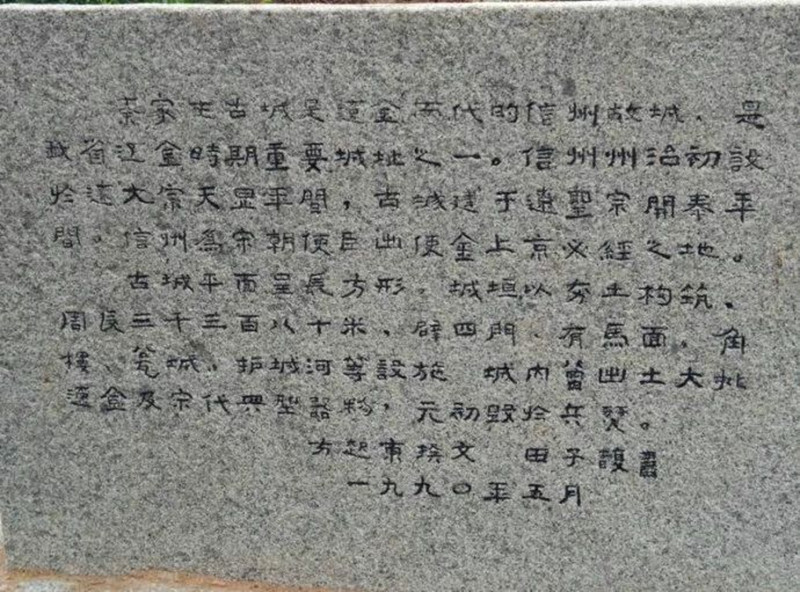 秦家屯古城是遼金兩代的信州故城，是
我省遼金時期重要城址之一。信州州治初設
於遼太宗天显年間，古城建于遼聖宗開泰年
間。信州為宋朝使臣出使金上京必經之地。
古城平面呈長方形。城垣以夯土构筑。
周長三千三百八十米、辟四門、有馬面，角
樓、瓮城，护城河等設施 城内曾出土大批
遼金及宋代典型器物，元初毀於兵燹。
方起東撰文 田子馥書
一九九〇年五月